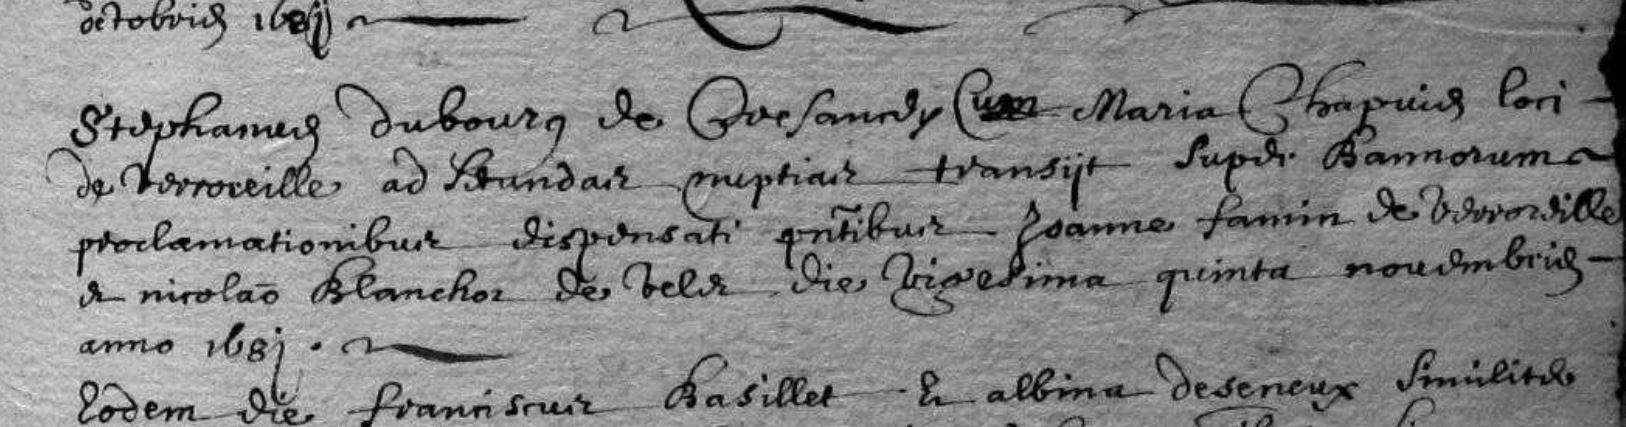 octobris 1681
Stephanus dubourg de Cressancey Cum Maria Chapuis loci
de Verroveille ad secundas nuptias transijt super Bannorum
proclamationibus dispensati pñtibus Joanne famin de Verroveille
et nicolao Blanchot de Velet die Vigesima quinta novembris
anno 1681.
Eodem die franciscus Basillet Et albina deseneux Similiter